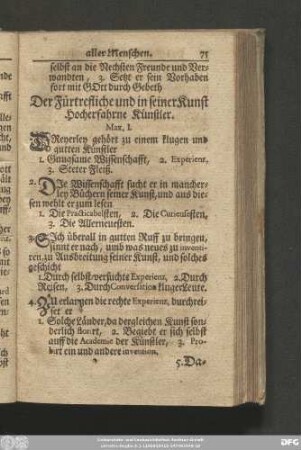 aller Menschen. 75
selbst an die Nechsten Freunde und Ver-
wandten, 3. Setzt er sein Vorhaben
fort mit GOtt durch Gebeth
Der Fürtrefliche und in seiner Kunst
Hocherfahrne Künstler.
Max. I.
DReyerley gehört zu einem klugen und
gutten Künstler
1. Gnugsame Wissenschafft, 2. Experienz,
3. Steter Fleiß.
2. DIe Wissenschafft sucht er in mancher-
ley Büchern seiner Kunst, und aus die-
sen wehlt er zum lesen
1. Die Practicabelsten, 2. Die Curieusesten,
3. Die Allerneuesten.
3. SIch überall in gutten Ruff zu bringen,
sinnt er nach, umb was neues zu inventi-
ren zu Ausbreitung seiner Kunst, und solches
geschicht
1. Durch selbst versuchte Experienz, 2. Durch
Reisen, 3. Durch Conversation kluger Leute.
4. ZU erlangen die rechte Experienz, durchrei-
set er
1. Solche Länder, da dergleichen Kunst son-
derlich florirt, 2. Begiebt er sich selbst
auff die Academie der Künstler, 3. Pro-
birt ein und andere invention.
5. Da-